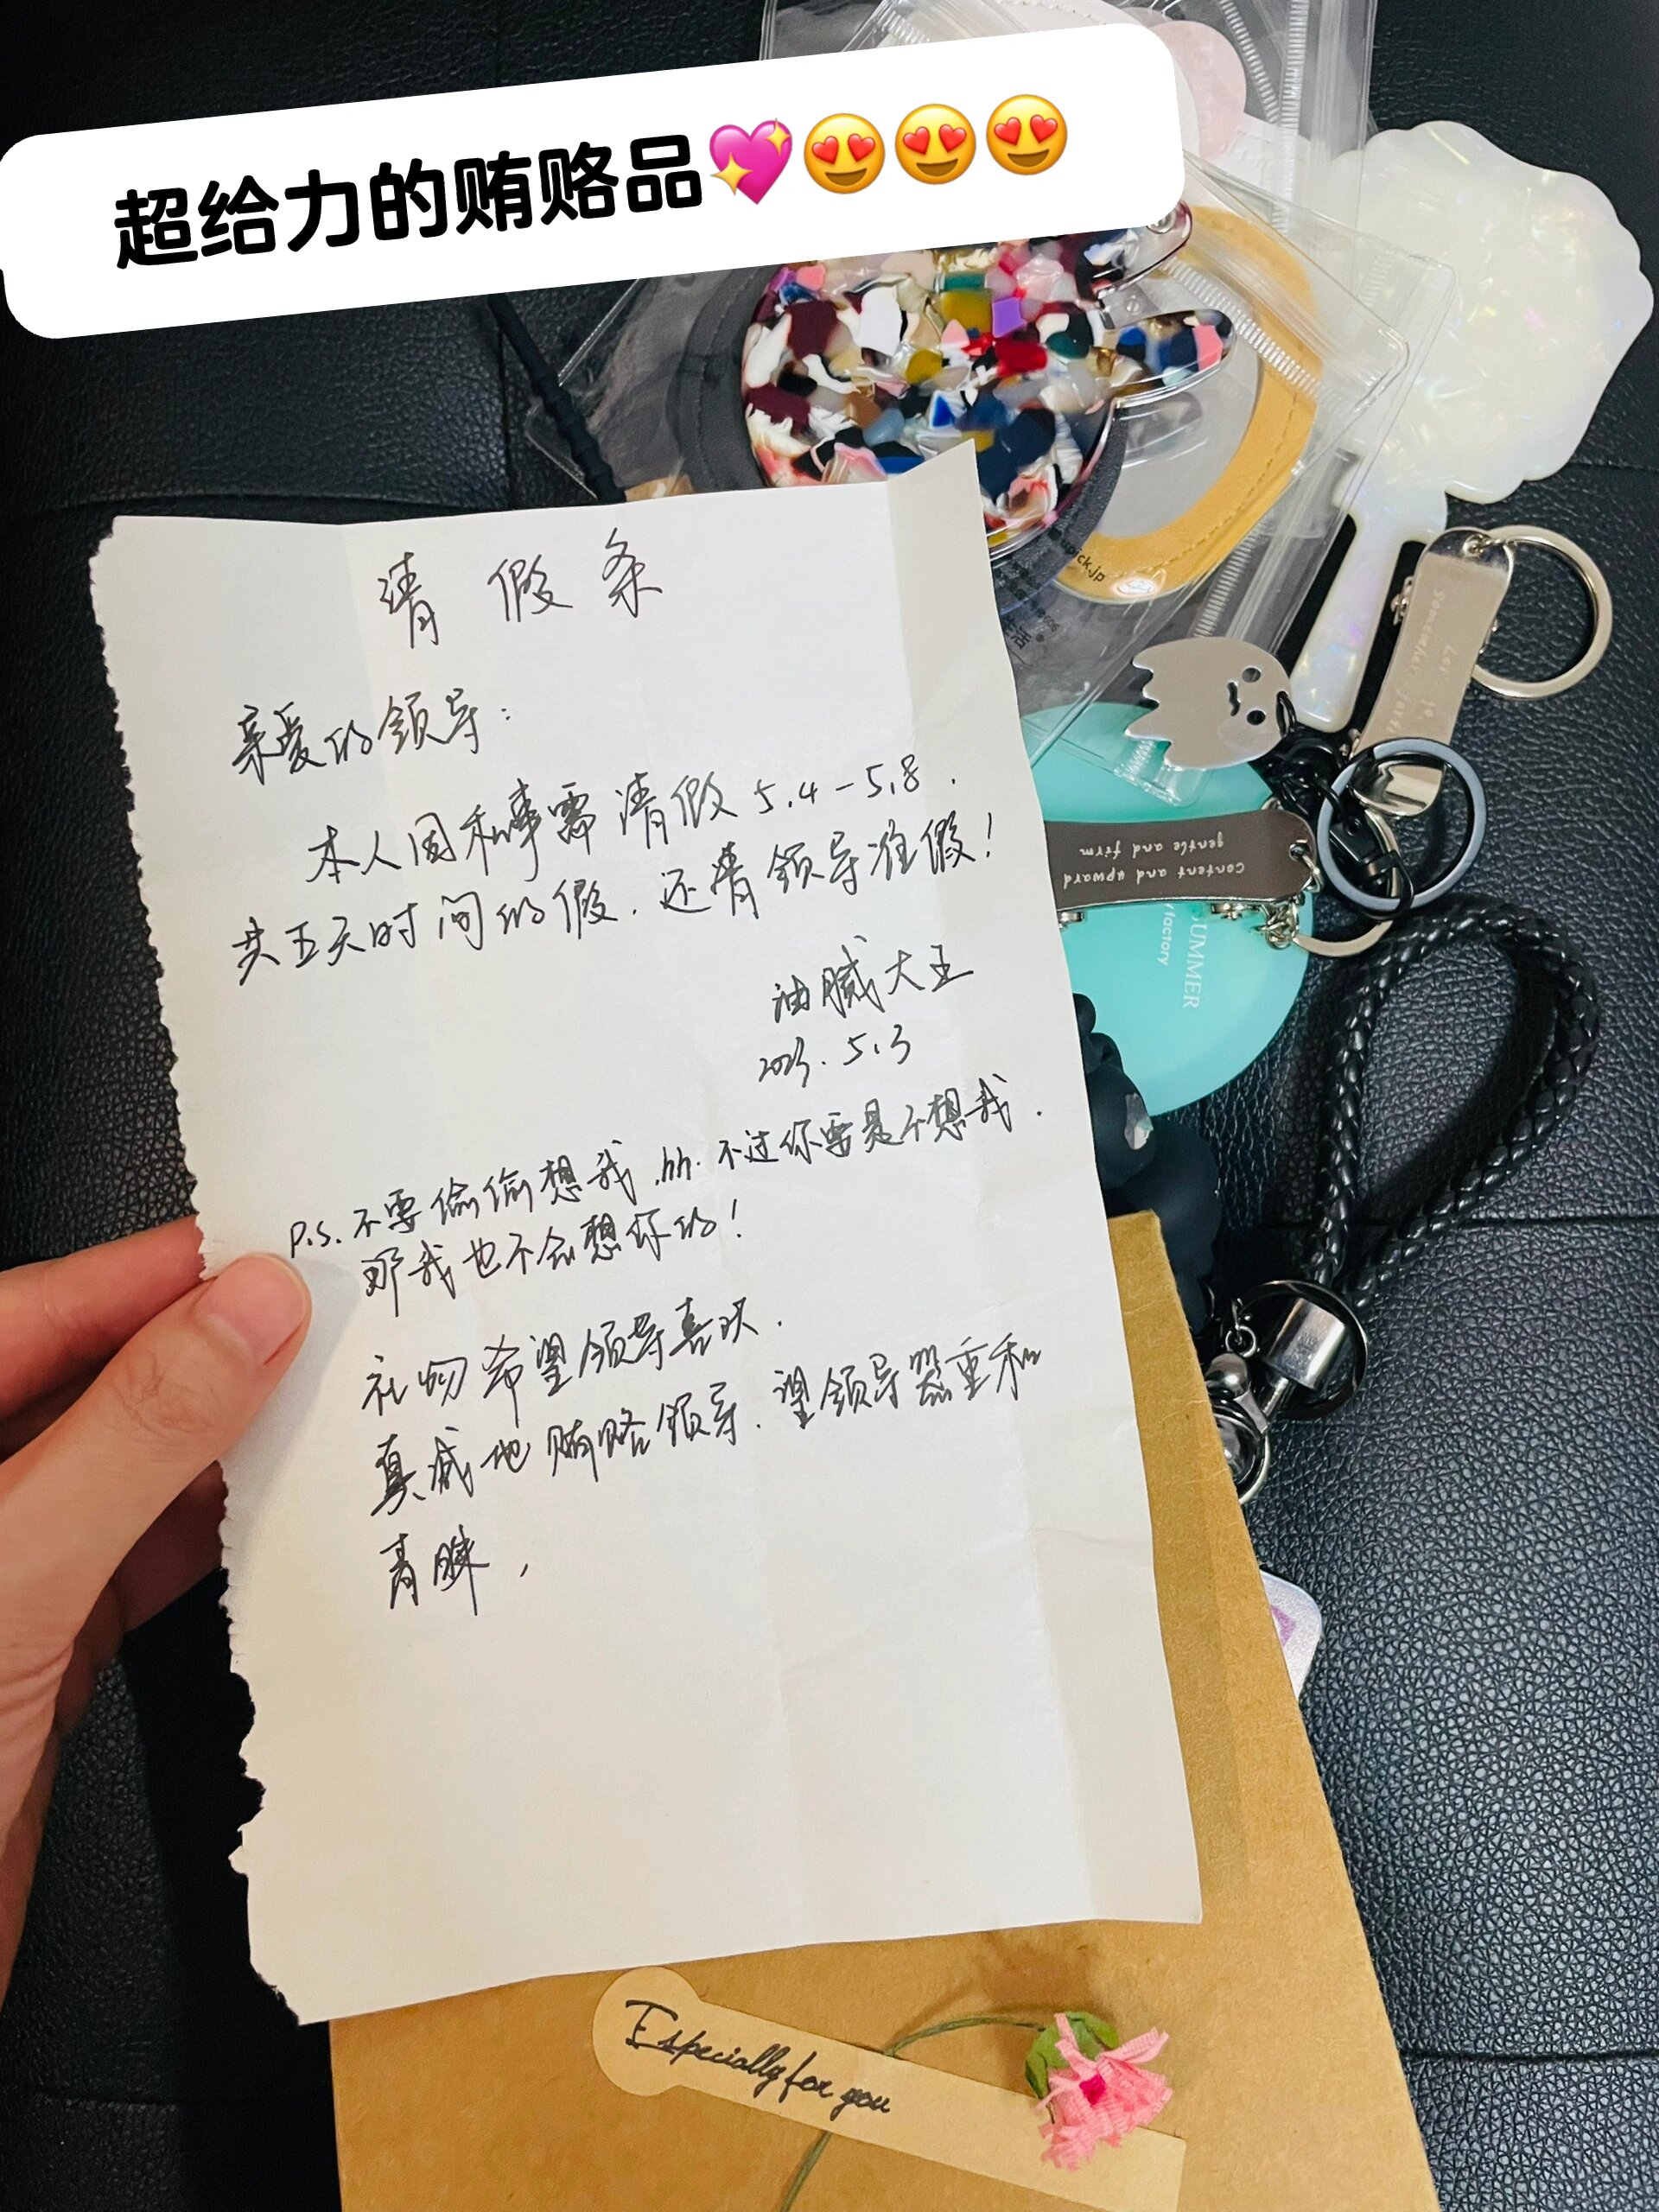 超给力的贿赂品💖😍😍😍
请假条
亲爱的领导：
本人因私事需请假5.4-5.8.
共五天时间的假.还请领导准假!
油腻大王
2023.5.3
P.S.不要偷偷想我.hh.不过你要是不想我.
那我也不会想你的!
礼物希望领导喜欢.
真诚地贿赂领导.望领导器重和
青睐,
Especially for you
pick.jp
生活
Let it go
content and upward
gentle and firm
SUMMER
factory